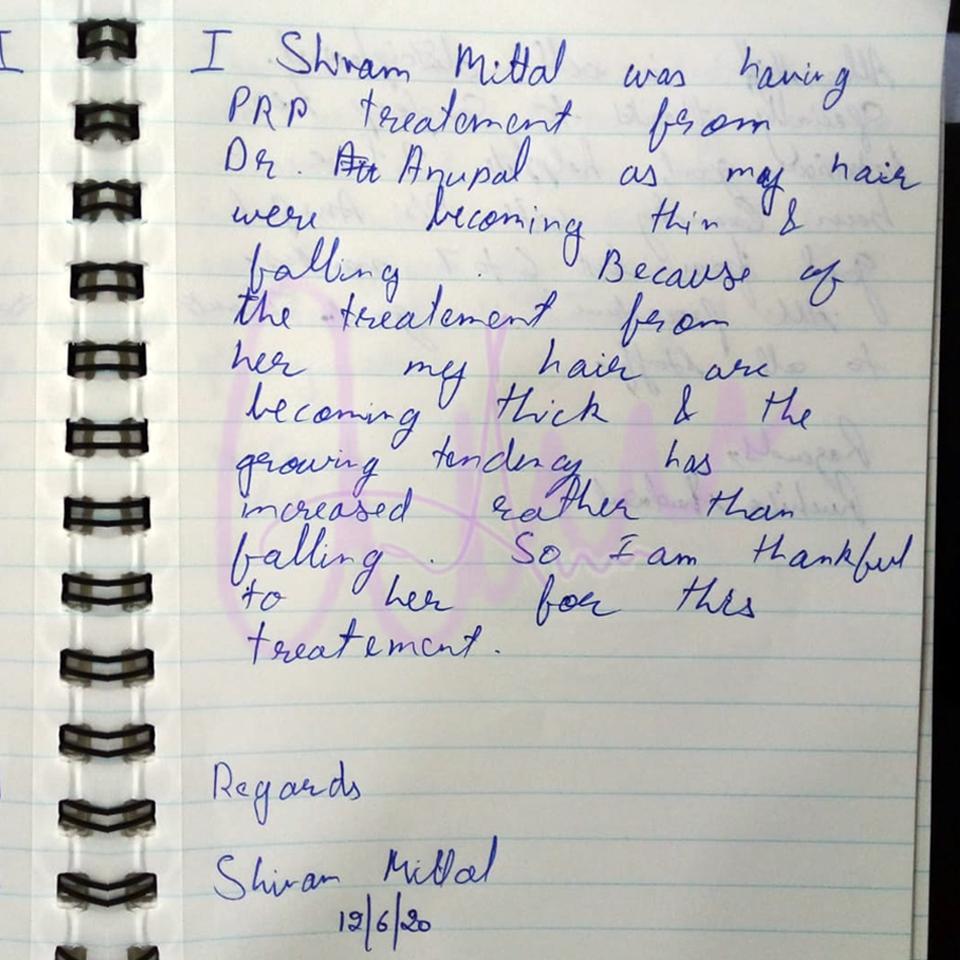 I Shivam Mittal was having
PRP treatement from
Dr. Anupal as my hair
were becoming thin &
falling . Because of
the treatement from
her my hair are
becoming thick & the
growing tendency has
increased rather than
falling . So I am thankful
to her for this
treatement.
Regards
Shivam Mittal
12/6/20